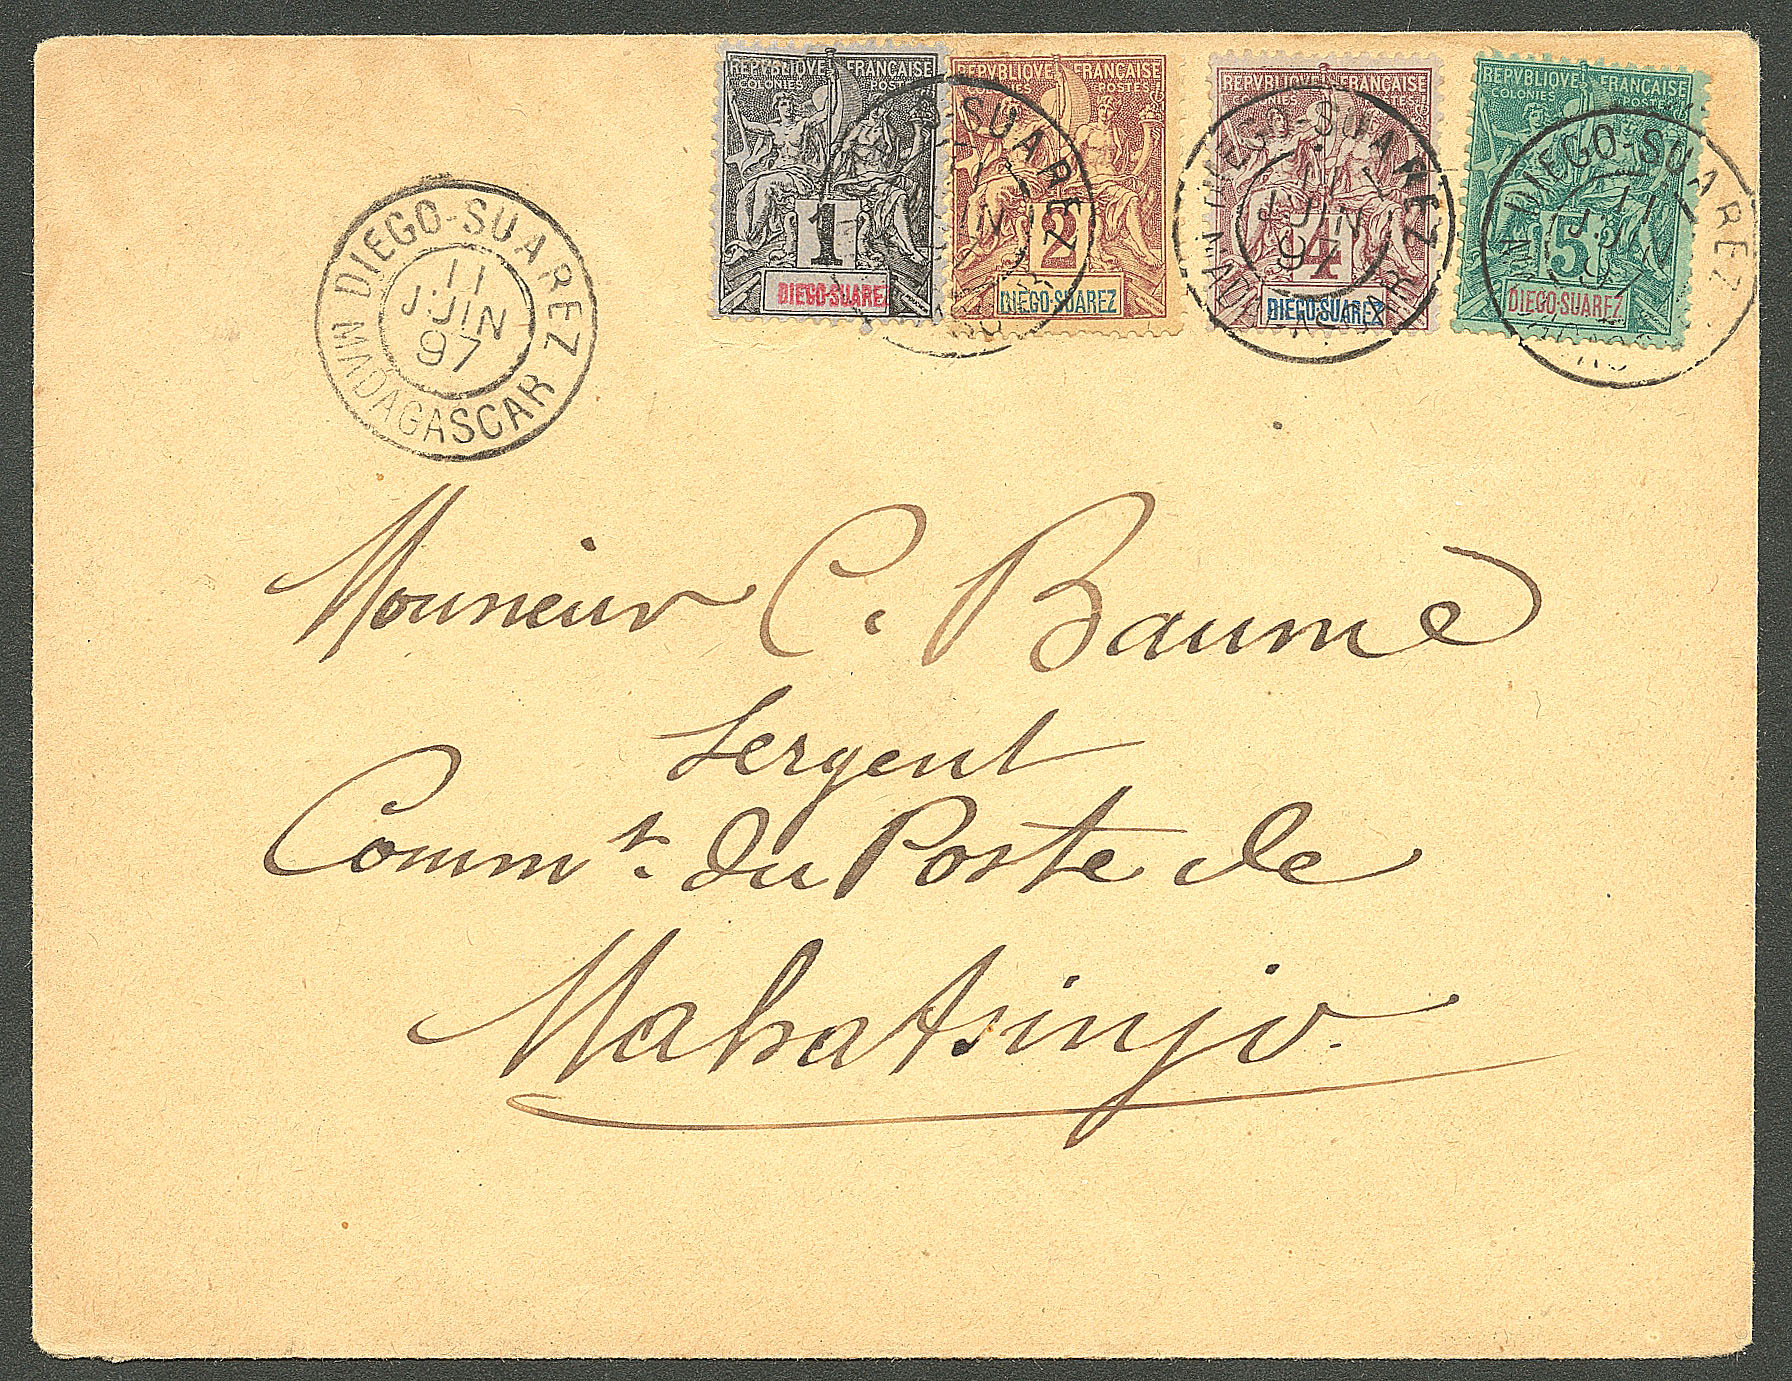 REPVBLIQVE FRANÇAISE
COLONIES POSTES
1
DIEGO-SUAREZ
REPVBLIQVE FRANÇAISE
COLONIES POSTES
2
DIEGO-SUAREZ
REPVBLIQVE FRANÇAISE
COLONIES POSTES
4
DIEGO-SUAREZ
REPVBLIQVE FRANÇAISE
COLONIES POSTES
5
DIEGO-SUAREZ
DIEGO-SUAREZ
11
JUIN
97
MADAGASCAR
DIEGO-SUAREZ
11
JUIN
97
MADAGASCAR
DIEGO-SUAREZ
11
JUIN
97
Monsieur C. Baume
Sergent
Commt. du Poste de
Mahatsinjo.